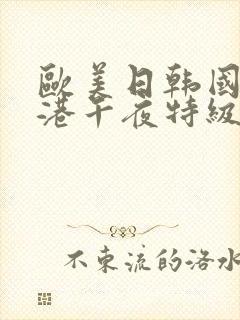 歐美日韩國
港午夜特級
不東流的洛水